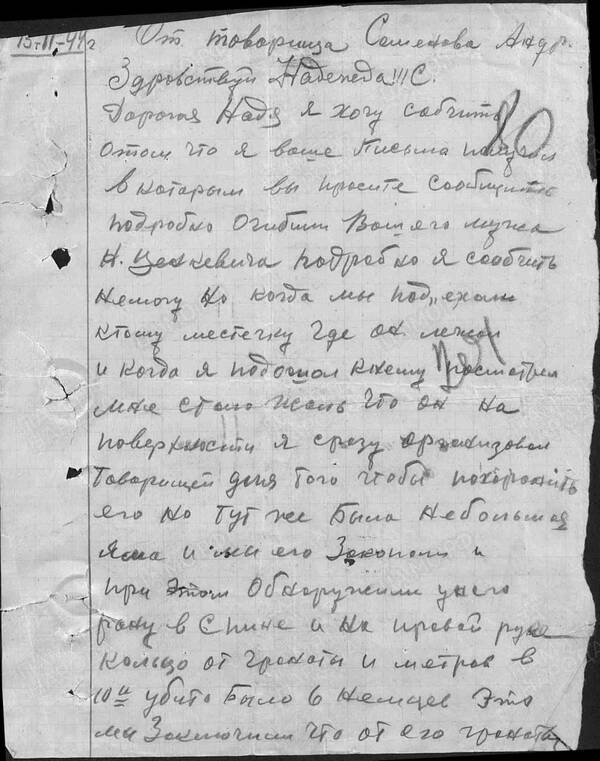 15-II-44г От товарища Семенова Андр.
Здравствуй Надежда!!! С.
Дорогая Надя я хочу собчить
отом что я ваше письма получил
80
в которым вы просите сообщить
подробко огибили Вашего мужа
Н. Ценкевича подробко я сообчить
немогу но когда мы под,,ехали
ктому местечку где он лежал
и когда я подошол кнему просмотрел
мне стало жаль что он на
поверхности я сразу организовал
товарищей для того чтобы похоронить
его но тут же была небольшая
яма и мы его закопали и
при этом обнаружили унего
рану в спине и на правой руке
кольцо от гранаты и метров в
10и убито было 6 немцев это
мы заключили что от его гранаты